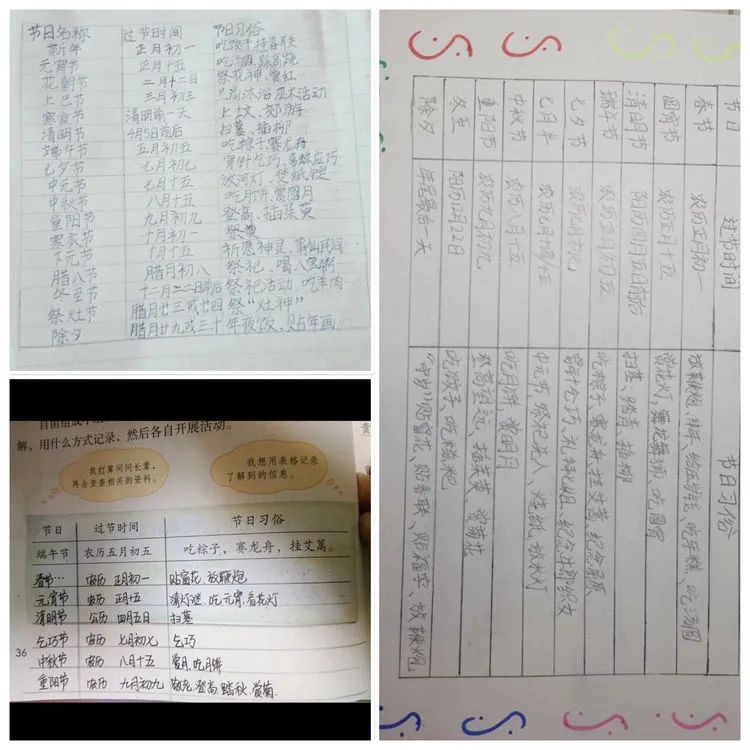 节日名称 过节时间 节日习俗
新年 正月初一 吃饺子 挂春联
元宵节 正月十五 吃汤圆、踩高跷
花朝节 二月十二日 祭花神、赏红
上巳节 三月初三 兰汤沐浴、巫术活动
寒食节 清明前一天 上土文、郊游
清明节 4月5日前后 扫墓、插柳
端午节 五月初五 吃粽子、赛龙舟
七夕节 七月初七 穿针乞巧、喜蛛应巧
中元节 七月十五 放河灯、焚纸锭
中秋节 八月十五 吃月饼、赏圆月
重阳节 九月初九 登高、插茱萸
寒衣节 十月初一 祭奠
下元节 十月十五 祈愿神灵、
腊八节 腊月初八 祭祀、喝八粥
冬至节 十二月二十二日前后 祭祀活动、吃羊肉
祭灶节 腊月廿三或廿四 祭“灶神”
除夕 腊月廿九或三十 年夜饭、贴年画
解，用什么方式记录，然后各自开展活动。
我打算问问长辈，
再去查查相关的资料。
我想用表格记录
了解到的信息。
节日 过节时间 节日习俗
端午节 农历五月初五 吃粽子，赛龙舟，挂艾蒿。
春节… 农历 正月初一 贴窗花、放鞭炮
元宵节 农历 正月十五 猜灯谜、吃元宵、看花灯
清明节 公历 四月五日 扫墓
乞巧节 农历 七月初七 乞巧
中秋节 农历 八月十五 赏月、吃月饼
重阳节 农历 九月初九 敬老、登高、踏秋、赏菊
36
节日 过节时间 节日习俗
春节 农历正月初一 放鞭炮、拜年、给压岁钱、吃年糕、吃汤圆
元宵节 农历正月十五 赏花灯、舞龙舞狮、吃
清明节 阳历四月五日前后 扫墓、踏青、插柳
端午节 农历五月初五 吃粽子、赛龙舟、挂艾蒿、纪念屈原
七夕节 农历七月初七 穿针乞巧、
七月半 农历七月 中元节、祭祀亡人、烧纸、放河灯
中秋节 农历八月十五 吃月饼、赏明月
重阳节 农历九月初九 登高望远、插茱萸、赏菊花
冬至 阳历12月22日 吃饺子、吃糍粑
除夕 年尾最后一天 “守岁”、贴窗花、贴春联、贴福字、放鞭炮